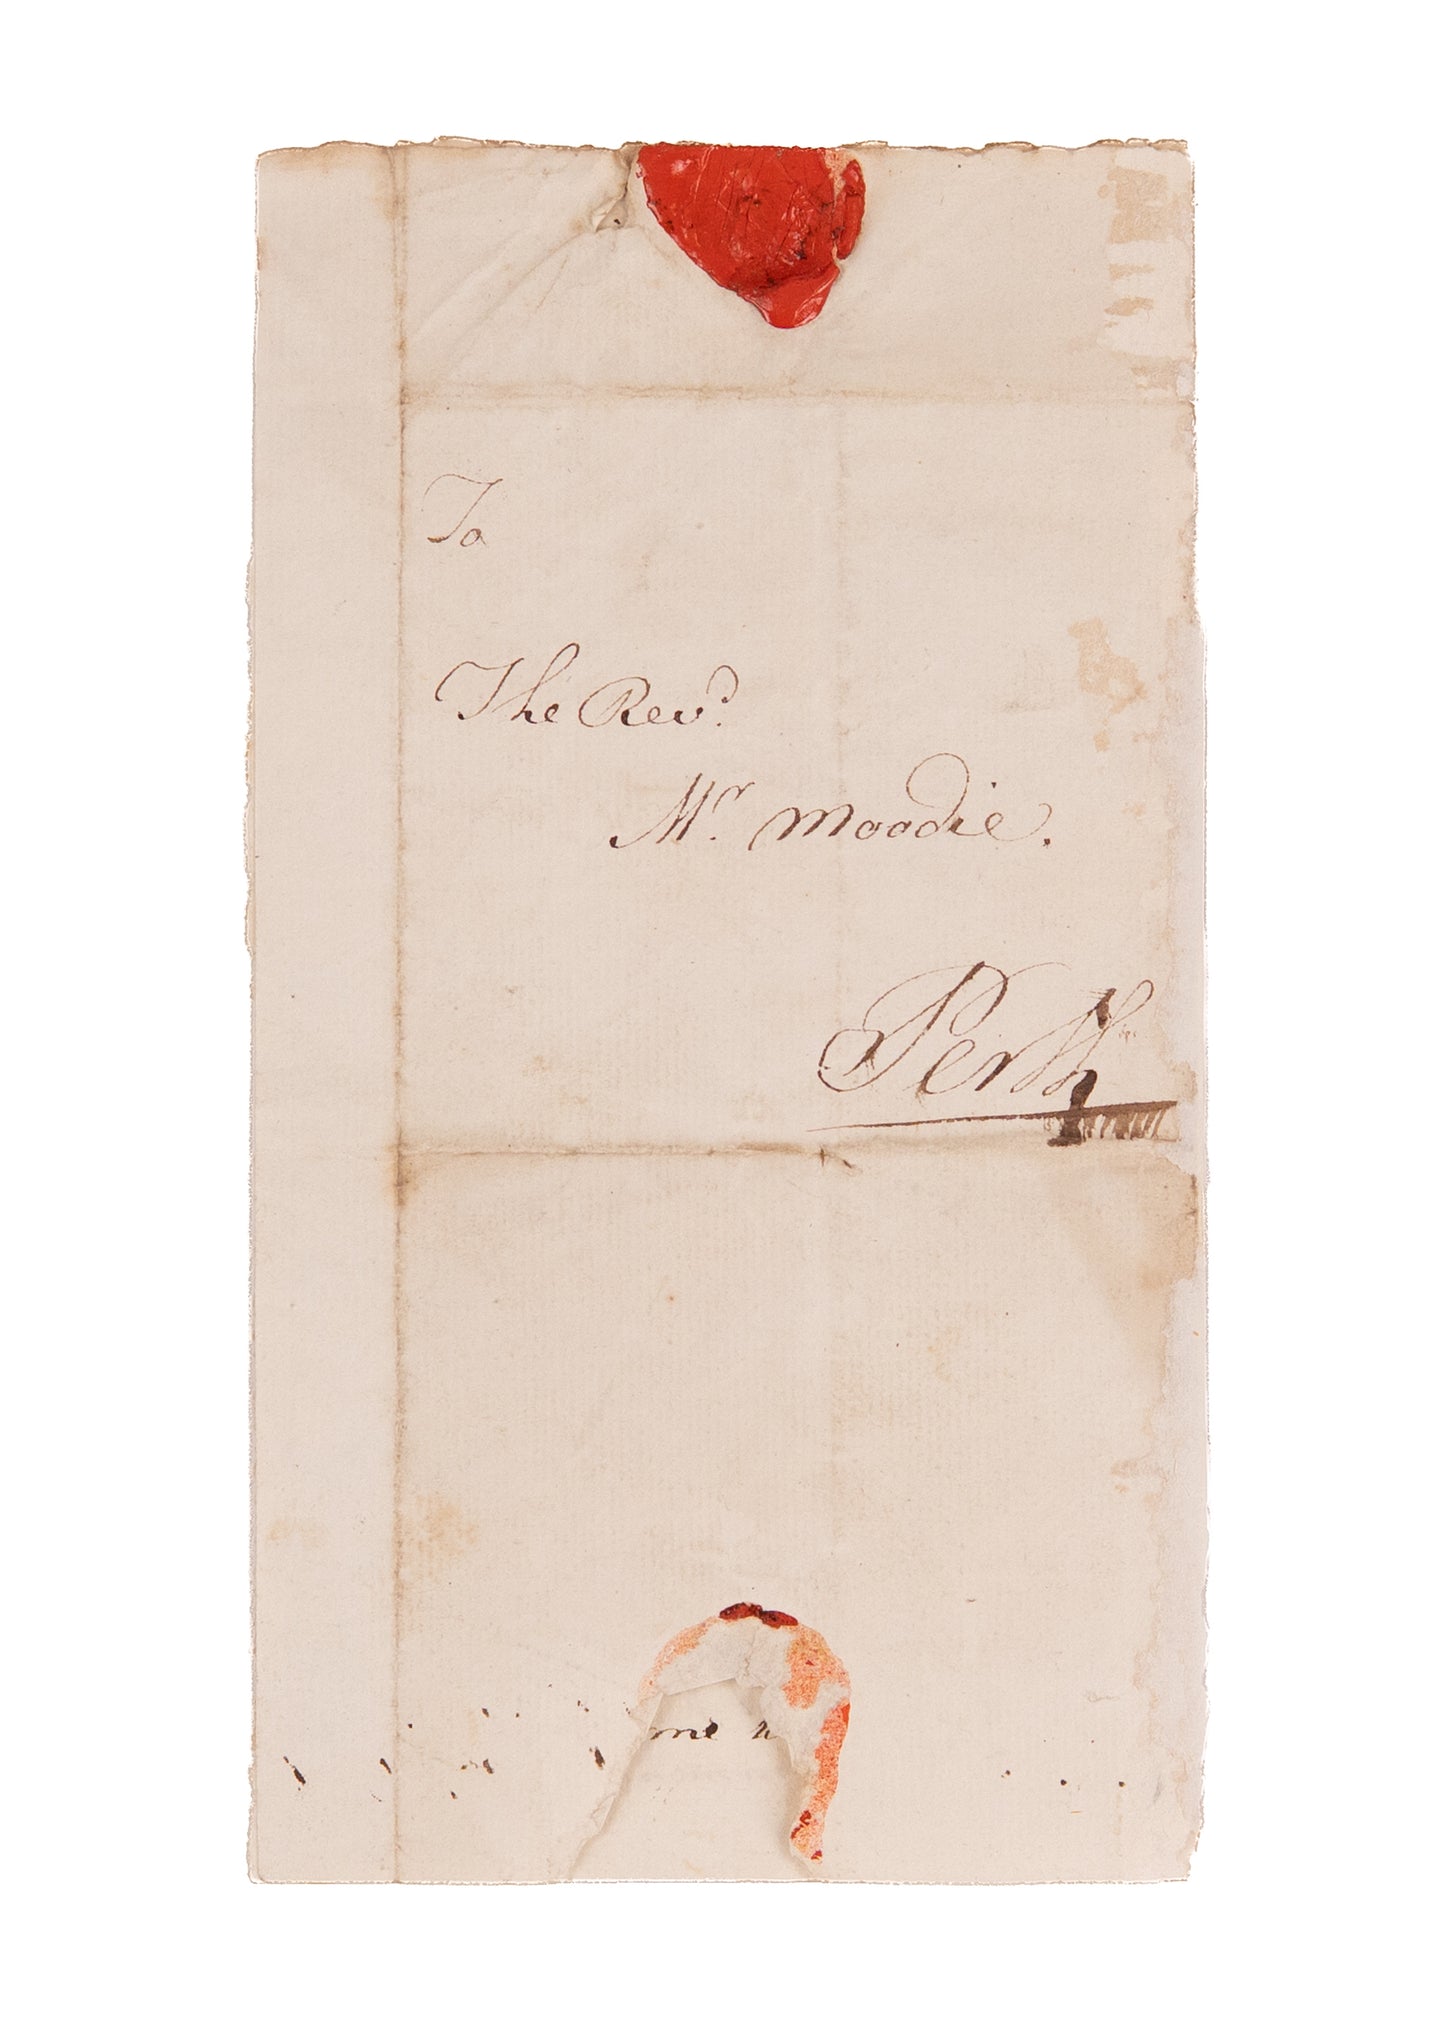 To
The Revd.
Mr. Moodie.
Perth
me